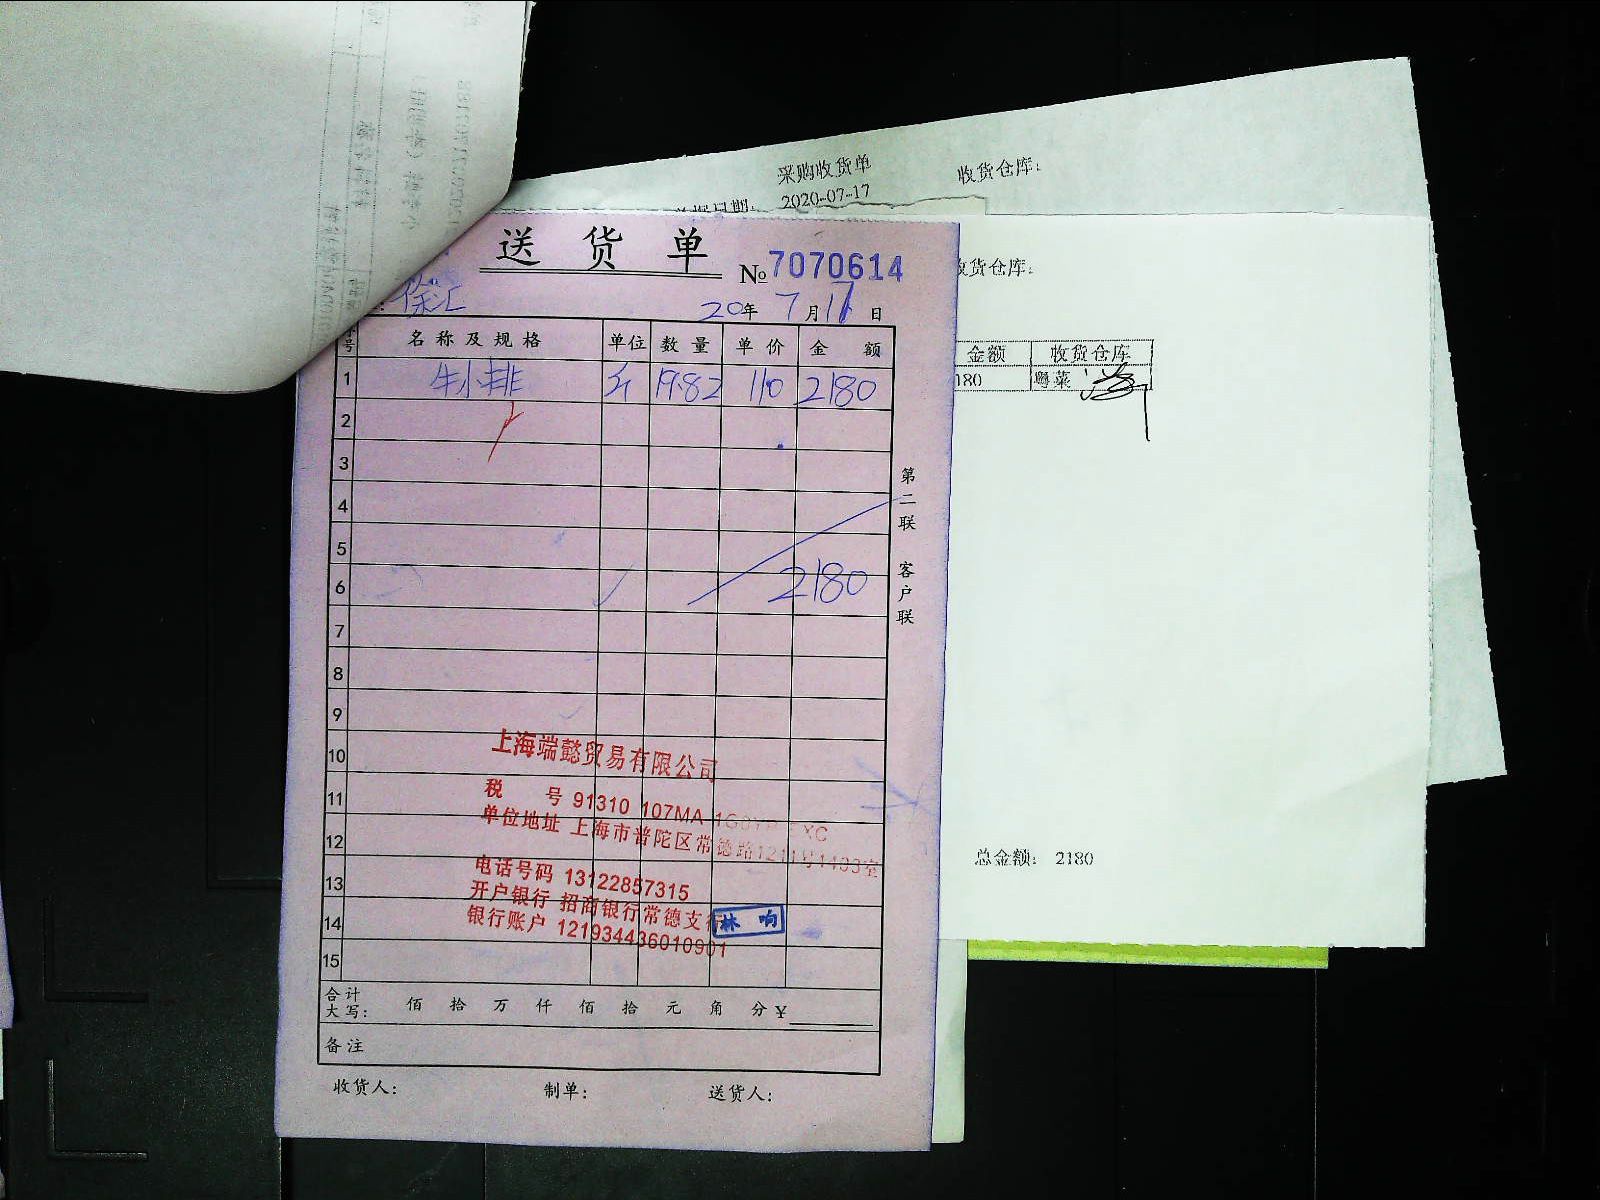 采购收货单
收货仓库:
2020-07-17
送货单
№7070614
收货仓库:
徐汇
20年7月17日
名称及规格 单位 数量 单价 金额
1 牛小排 斤 19.82 110 2180
2
3
4
5
6 2180
7
8
9
10
11
12
13
14
15
第二联 客户联
上海端懿贸易有限公司
税号 91310 107MA
单位地址 上海市普陀区常德路1211号1433室
电话号码 13122857315
开户银行 招商银行常德支行
银行账户 121934436010901
林响
合计大写: 佰 拾 万 仟 佰 拾 元 角 分 ¥
备注
收货人: 制单: 送货人:
金额 收货仓库
180 粤菜
总金额: 2180